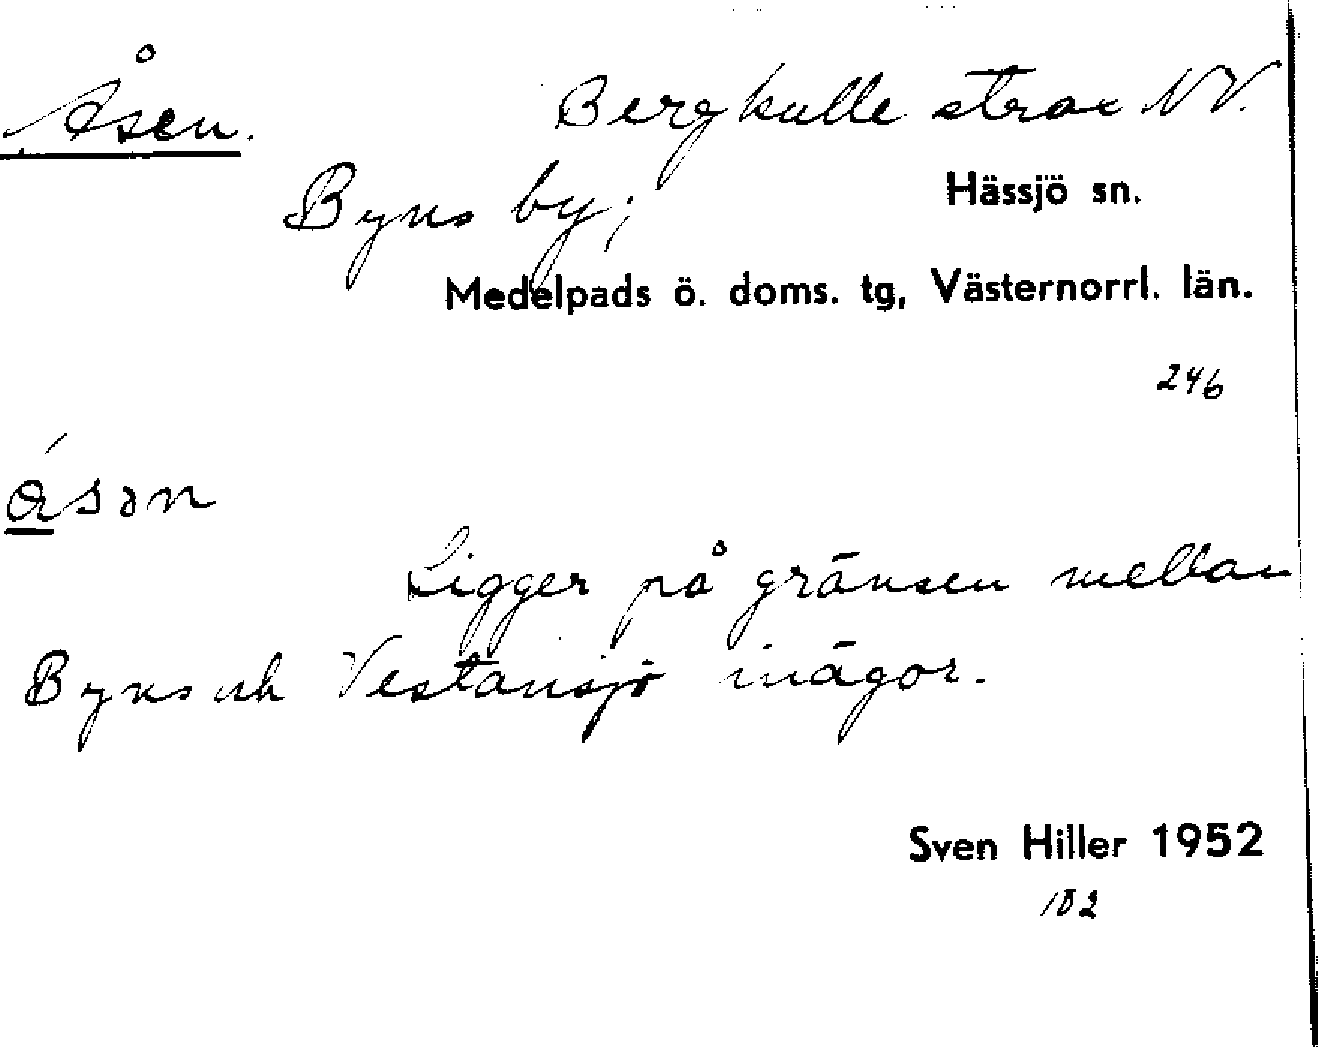 Åsen. Bergkulle strax NV.
Byns by; Hässjö sn.
Medelpads ö. doms. tg, Västernorrl. län.
246
ɑ́sən
Ligger på gränsen mellan
Byns och Vestansjö inägor.
Sven Hiller 1952
182